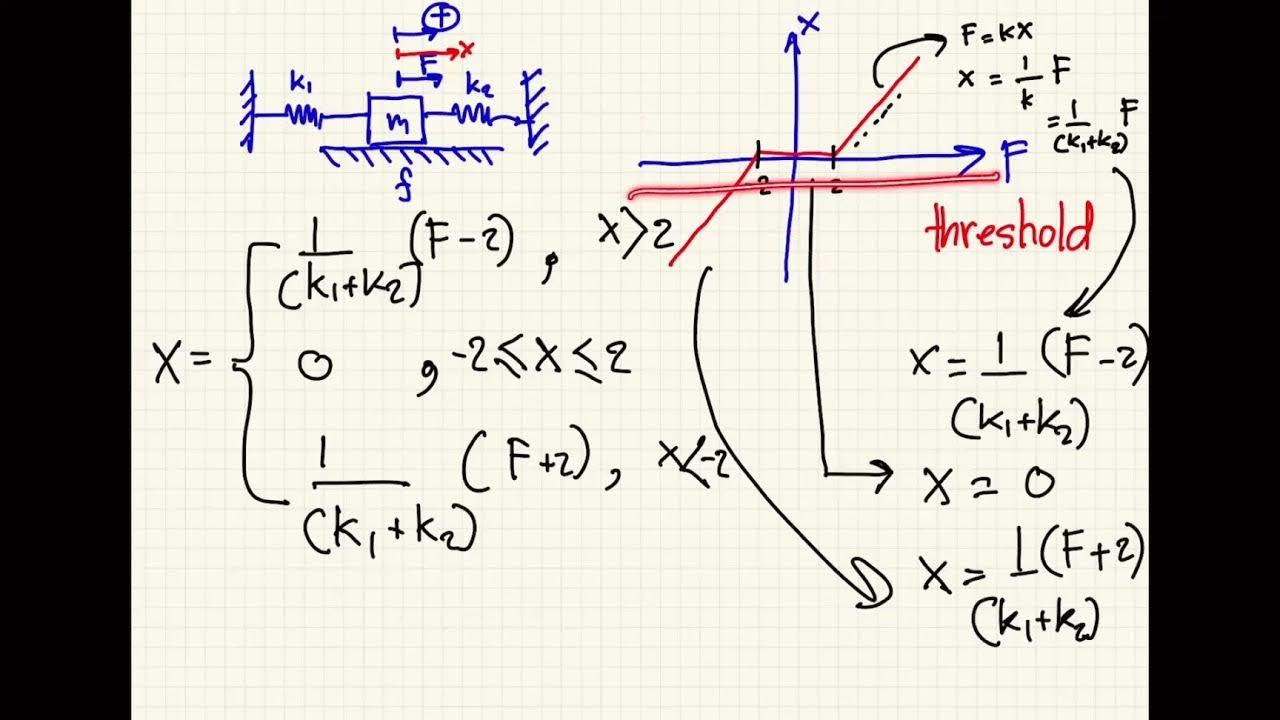 +
x
F
k₁
k₂
m
f
X
F = kX
x = 1/k F
= 1/(k₁+k₂) F
F
2
2
threshold
X = { 1/(k₁+k₂) (F-2) , X>2
0 , -2 ≤ X ≤ 2
1/(k₁+k₂) (F+2) , X<-2
X = 1/(k₁+k₂) (F-2)
X = 0
X = 1/(k₁+k₂) (F+2)